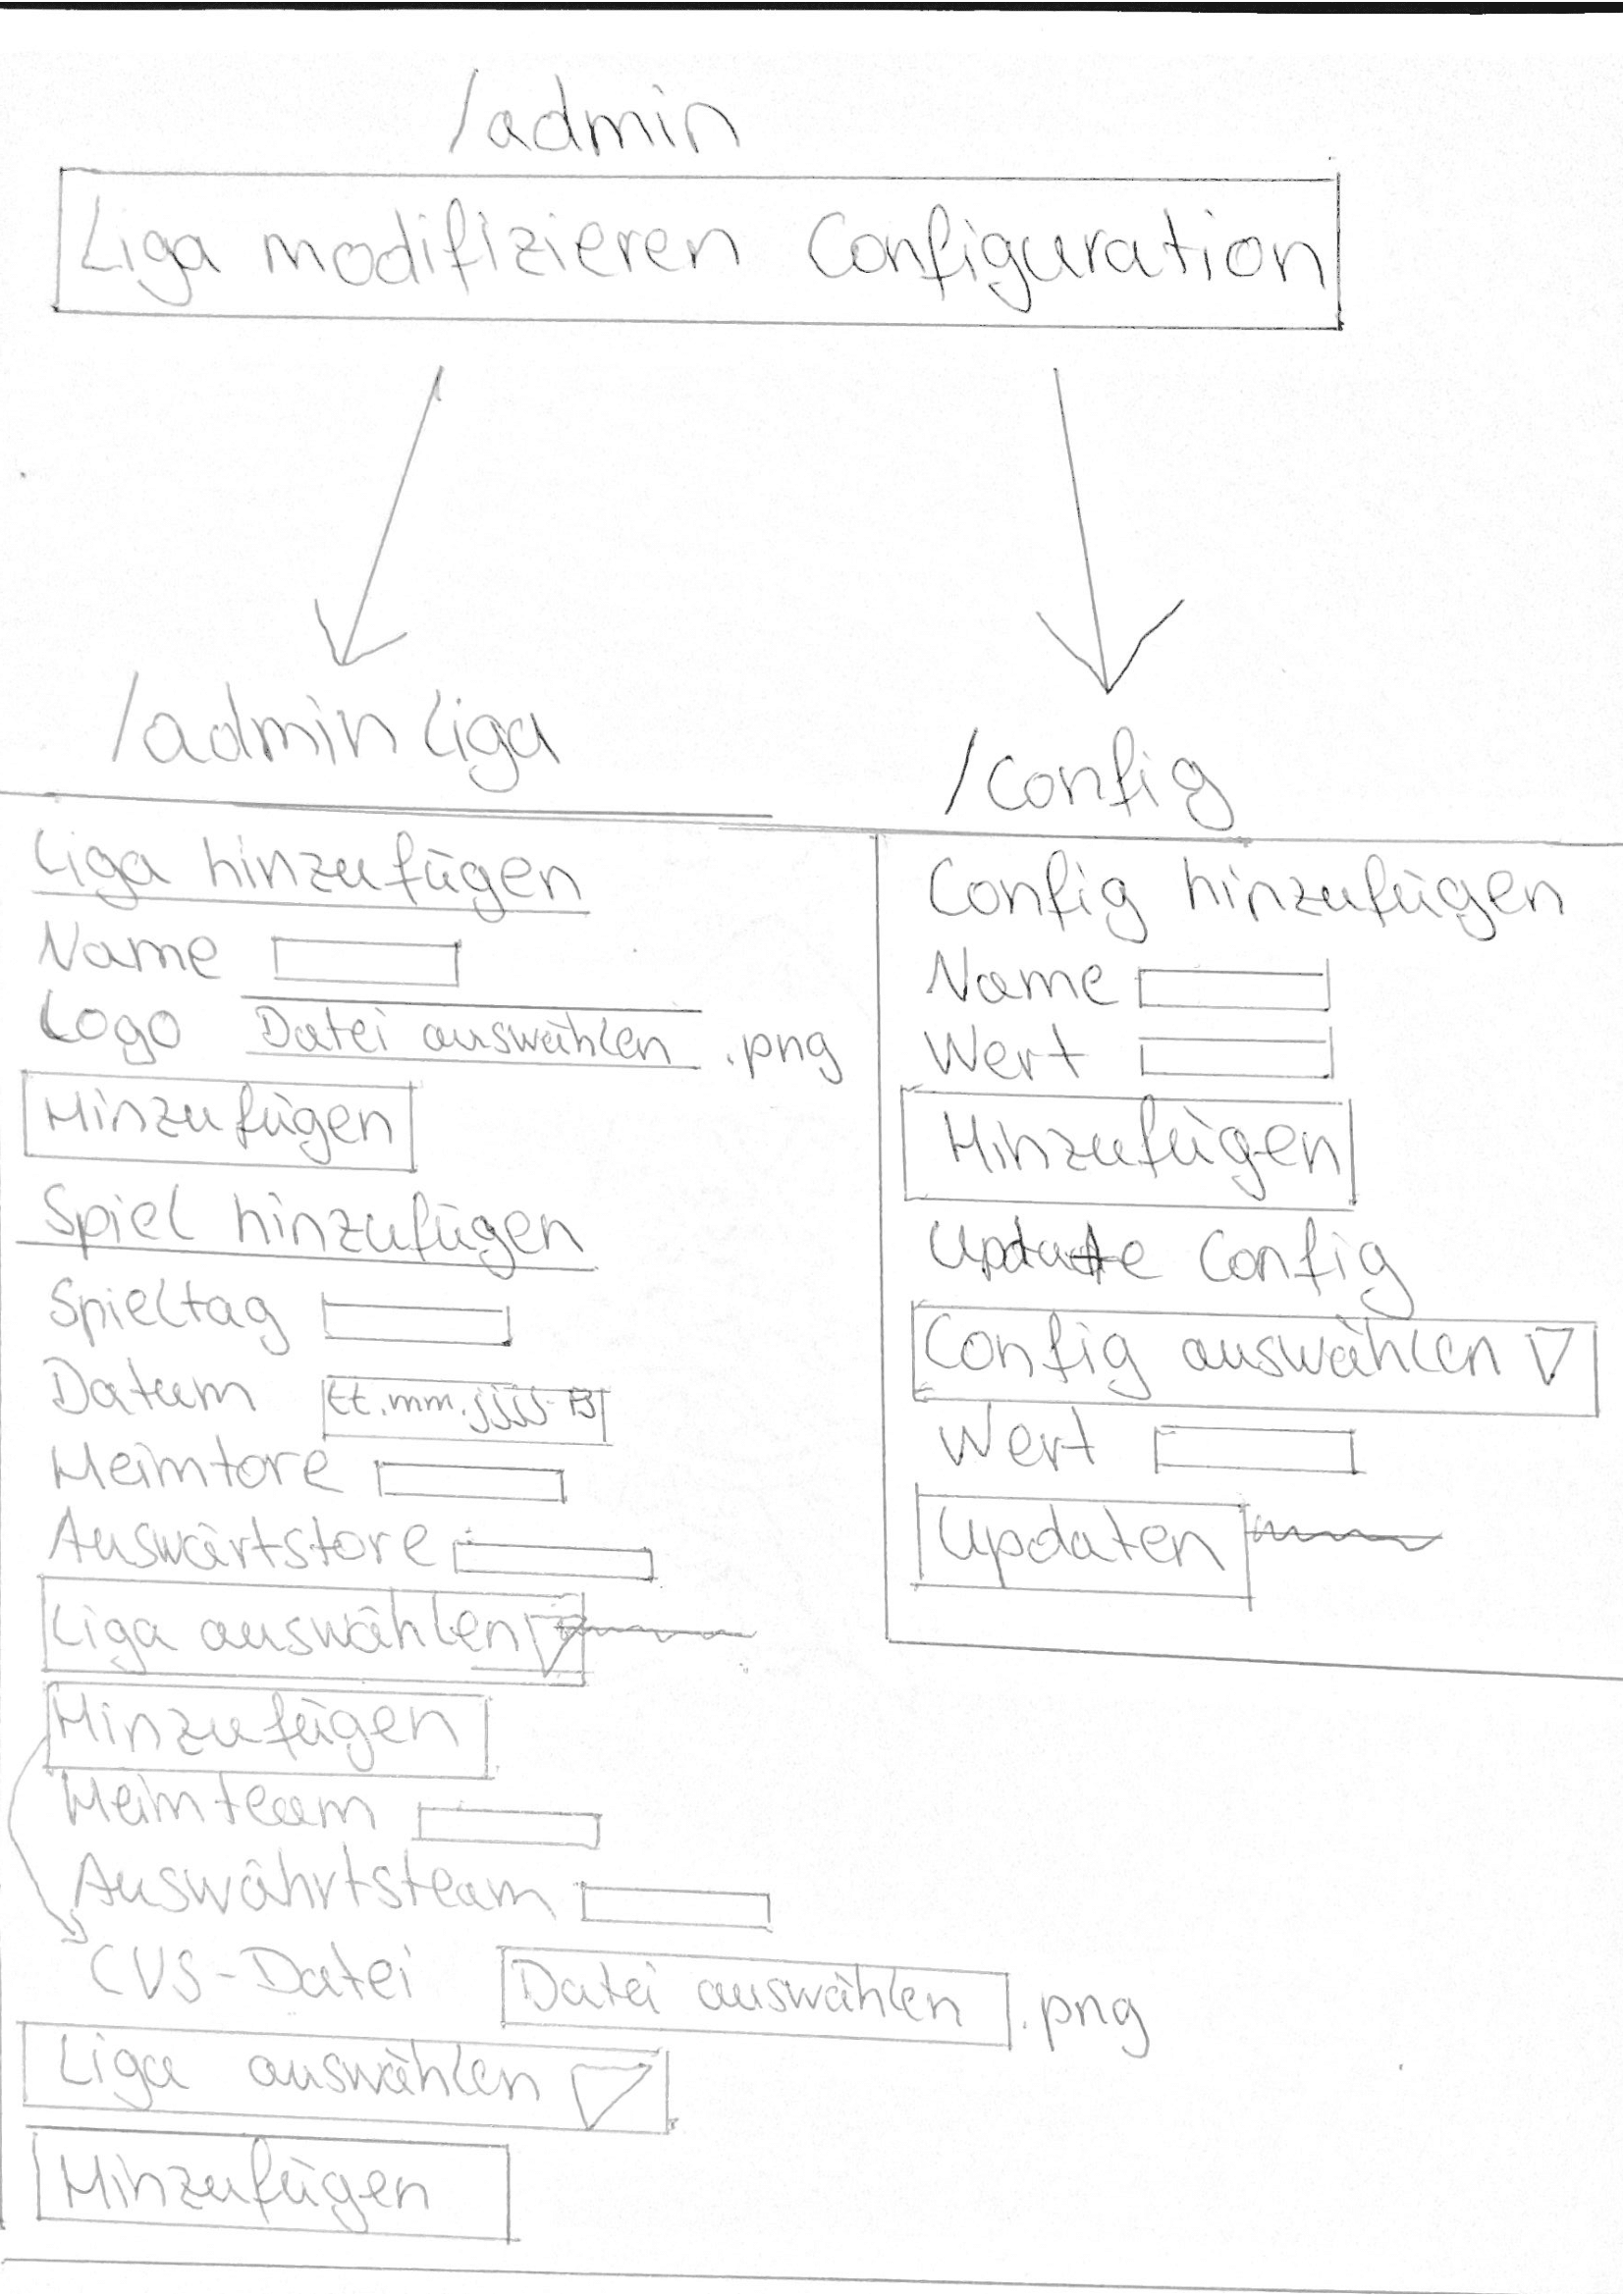 /admin
Liga modifizieren Configuration
/adminLiga
Liga hinzufügen
Name
Logo Datei auswählen .png
Hinzufügen
Spiel hinzufügen
Spieltag
Datum tt.mm.jjjj
Heimtore
Auswärtstore
Liga auswählen
Hinzufügen
Heimteam
Auswährtsteam
CVS-Datei Datei auswählen .png
Liga auswählen
Hinzufügen
/config
Config hinzufügen
Name
Wert
Hinzufügen
Update Config
Config auswählen
Wert
Updaten